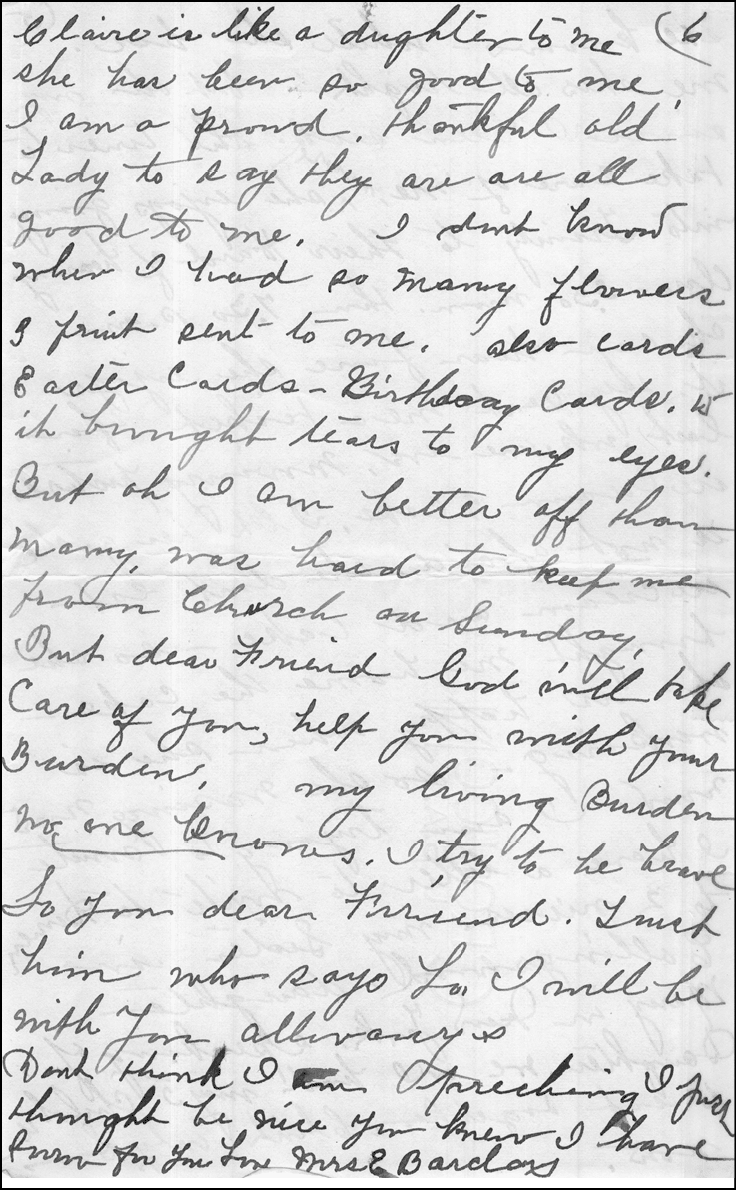 Claire is like a dughter to me (6
she has been so good to me,
I am a proud, thankful old
Lady to say they are are all
good to me. I dont know
when I had so many flowers
& fruit sent to me. also cards
Easter Cards - Birthday Cards.
it brought tears to my eyes.
But oh I am better off than
many, was hard to keep me
from Church on Sunday,
But dear Friend God will take
Care of you, help you with your
Burden, my living Burden
no one knows. I try to be brave
So you dear Frriend. Trust
him who says Lo, I will be
with you allways
Dont think I am preching I just
thought be nice you knew I have
for you Mrs E Barclay